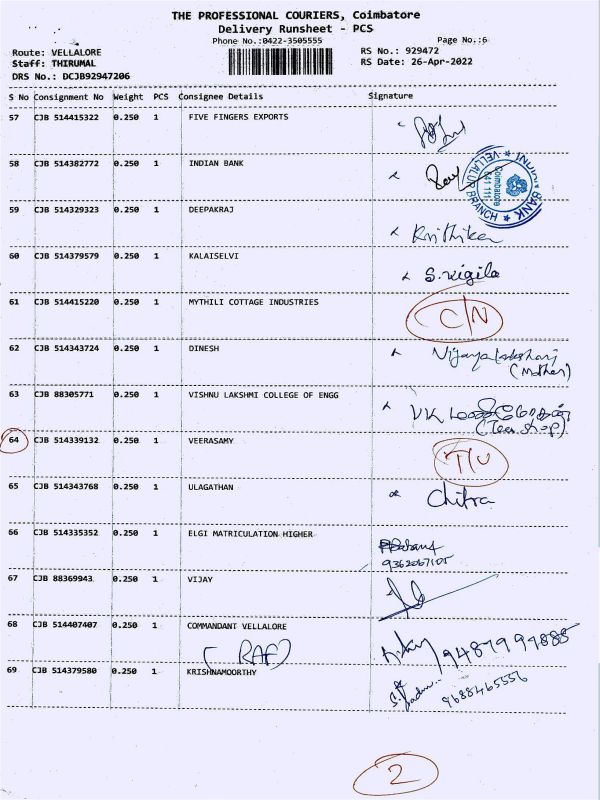 THE PROFESSIONAL COURIERS, Coimbatore
Delivery Runsheet - PCS
Phone No.:0422-3505555
Page No.:6
Route: VELLALORE
RS No.: 929472
Staff: THIRUMAL
RS Date: 26-Apr-2022
DRS No.: DCJB92947206
S No Consignment No Weight PCS Consignee Details Signature
57 CJB 514415322 0.250 1 FIVE FINGERS EXPORTS
58 CJB 514382772 0.250 1 INDIAN BANK
VELLALUR BRANCH
Coimbatore
BANK
59 CJB 514329323 0.250 1 DEEPAKRAJ
Krithika
60 CJB 514379579 0.250 1 KALAISELVI
S. Vigila
61 CJB 514415220 0.250 1 MYTHILI COTTAGE INDUSTRIES
C/N
62 CJB 514343724 0.250 1 DINESH
Vijayalakshmi
(Mother)
63 CJB 88305771 0.250 1 VISHNU LAKSHMI COLLEGE OF ENGG
VK
64 CJB 514339132 0.250 1 VEERASAMY
T/U
65 CJB 514343768 0.250 1 ULAGATHAN
Chitra
66 CJB 514335352 0.250 1 ELGI MATRICULATION HIGHER
67 CJB 88369943 0.250 1 VIJAY
68 CJB 514407407 0.250 1 COMMANDANT VELLALORE
(RAF)
69 CJB 514379580 0.250 1 KRISHNAMOORTHY
9688465556
2